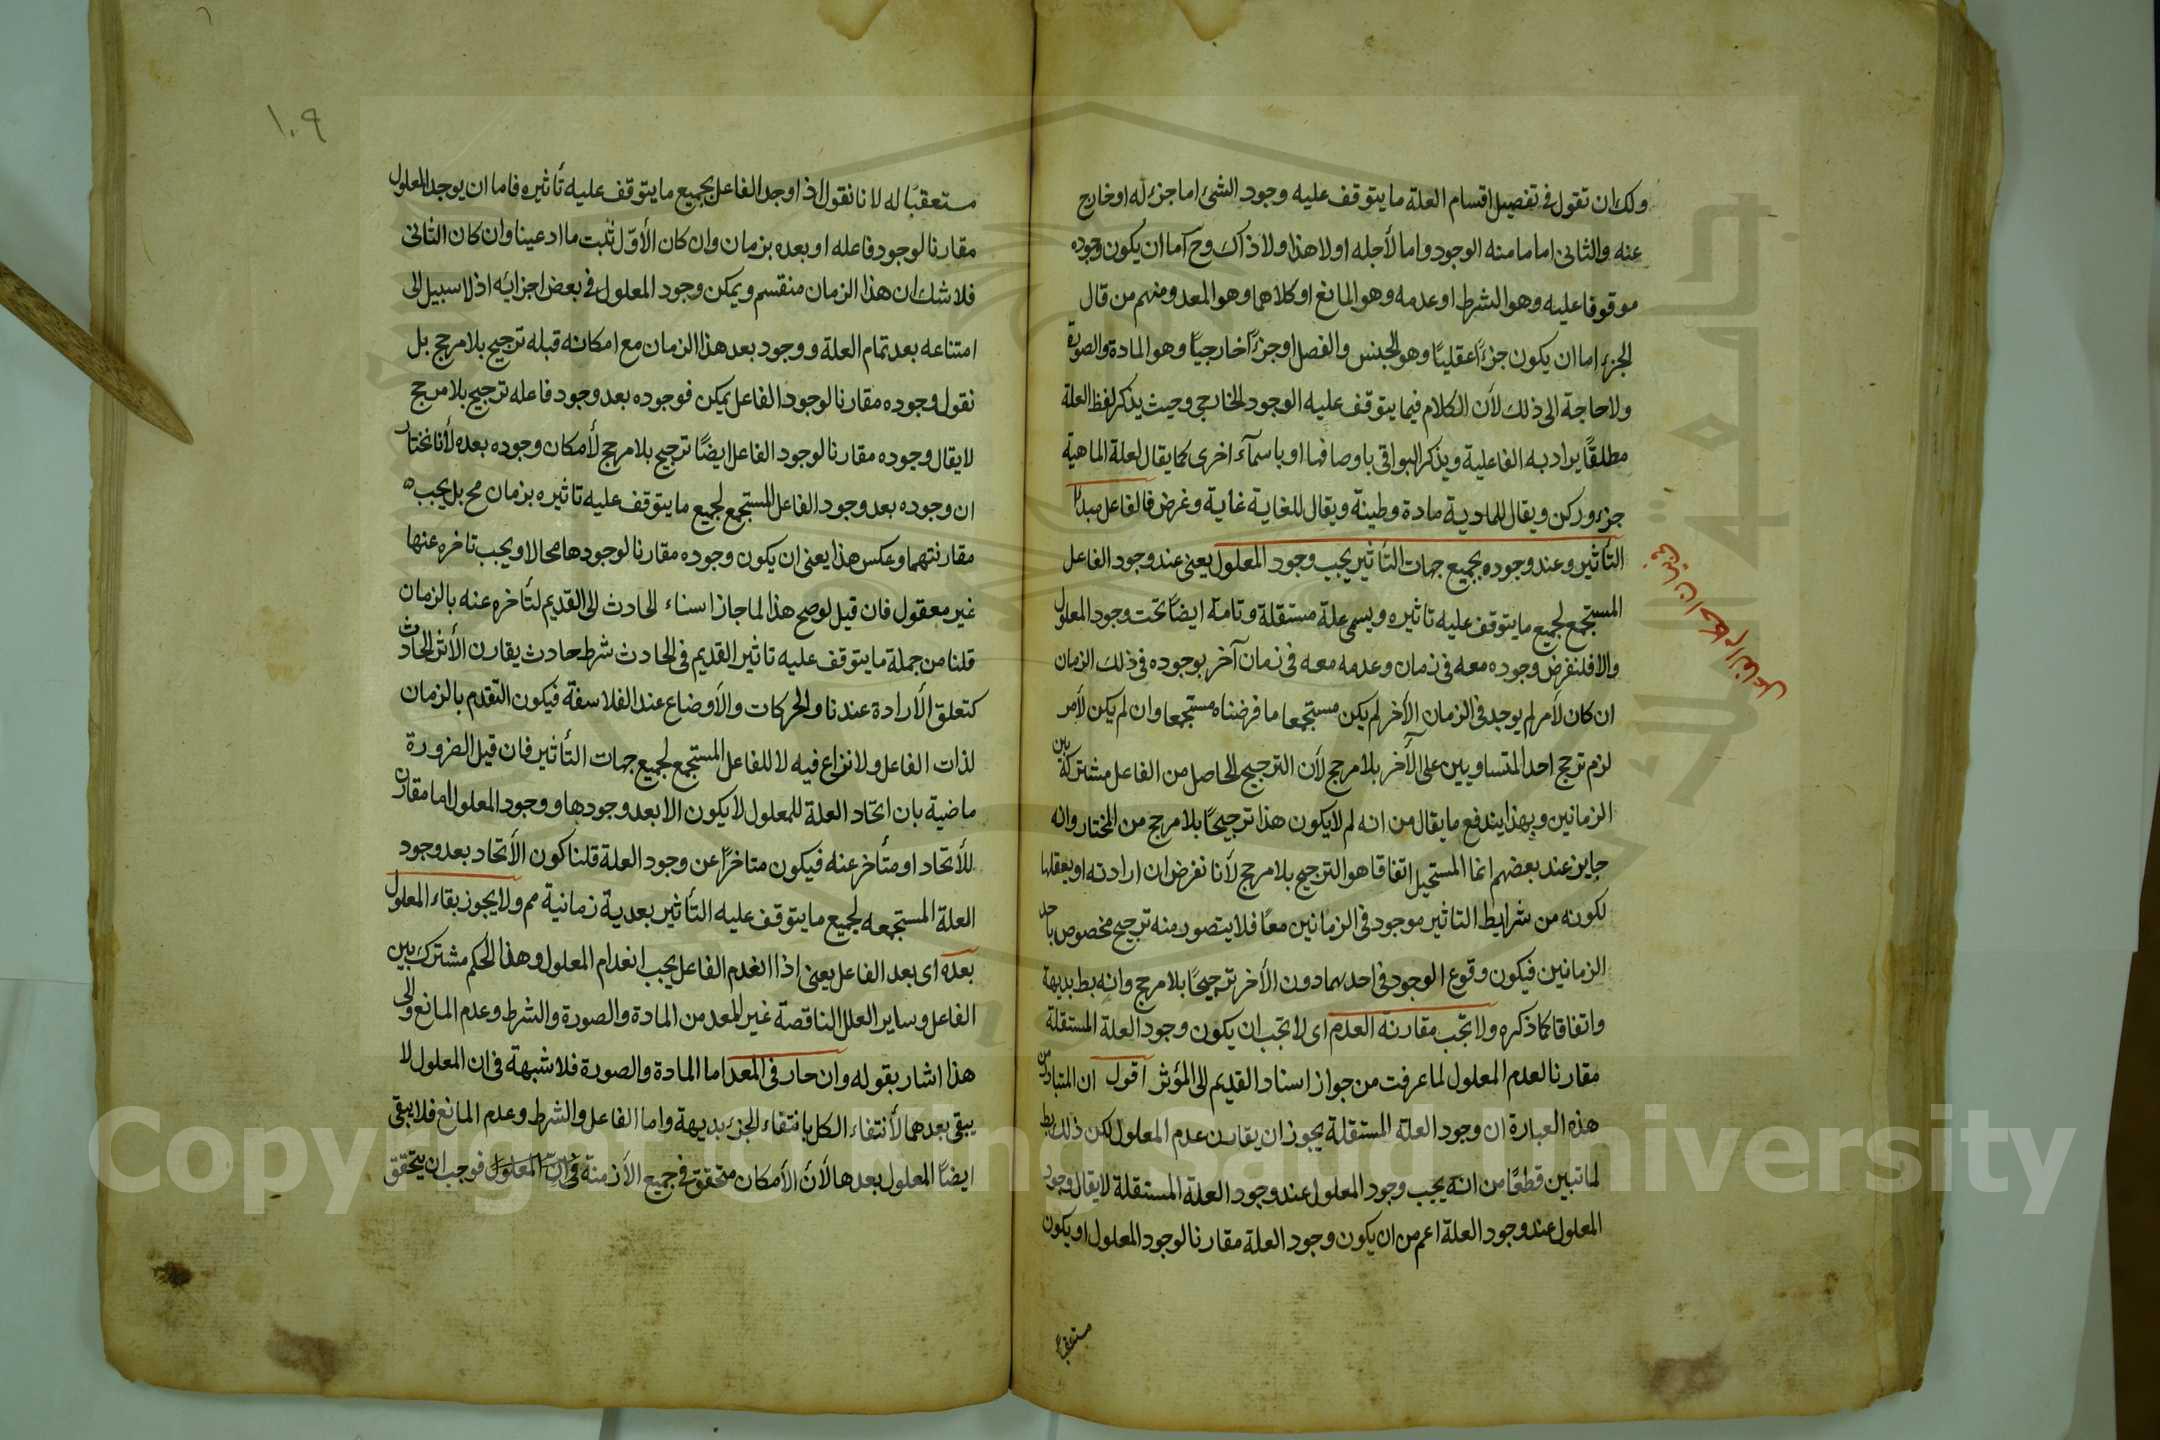 ولك ان تقول في تفصيل اقسام العلة ما يتوقف عليه وجود الشئ اما جزء له او خارج
عنه والثاني اما ما منه الوجود واما لأجله او لا هذا ولا ذاك وح اما ان يكون وجوده
موقوفا عليه وهو الشرط او عدمه وهو المانع او كلاهما وهو المعد ومنهم من قال
الجزء اما ان يكون جزءًا عقليًا وهو الجنس والفصل او جزءًا خارجيًا وهو المادة والصورة
ولا حاجة الى ذلك لأن الكلام فيما يتوقف عليه الوجود الخارجي وحيث يذكر لفظ العلة
مطلقًا يراد به الفاعلية ويذكر البواقي باوصافها او باسمآء اخرى كما يقال لعلة الماهية
جزء وركن ويقال للمادية مادة وطينة ويقال للغاية غاية وغرض فالفاعل مبدأ
التأثير وعند وجوده بجميع جهات التأثير يجب وجود المعلول يعني عند وجود الفاعل
المستجمع لجميع ما يتوقف عليه تاثيره ويسمى علة مستقلة وتامة ايضًا تحت وجود المعلول
والا فلنفرض وجوده معه في زمان وعدمه معه في زمان آخر بوجوده في ذلك الزمان
ان كان لأمر لم يوجد في الزمان الأخر لم يكن مستجمعا ما فرضناه مستجمعا وان لم يكن لأمر
لزم ترجح احد المتساويين على الأخر بلا مرجح لأن الترجيح الحاصل من الفاعل مشتركة بين
الزمانين وبهذا يندفع ما يقال من انه لم لا يكون هذا ترجيحًا بلا مرجح من المختار وانه
جايز عند بعضهم انما المستحيل اتفاقا هو الترجح بلا مرجح لأنا نفرض ان ارادته او يعقلها
لكونه من شرايط التاثير موجود في الزمانين معًا فلا يتصور منه ترجيح مخصوص باحد
الزمانين فيكون وقوع الوجود في احدهما دون الأخر ترجيحًا بلا مرجح وانه بط بديهة
واتفاقا كما ذكره ولا تجب مقارنة العدم اى لا تجب ان يكون وجود العلة المستقلة
مقارنا لعدم المعلول لما عرفت من جواز اسناد القديم الى المؤثر اقول ان المتبادر من
هذه العبارة ان وجود العلة المستقلة يجوز ان يقارن عدم المعلول لكن ذلك بط
لما تبين قطعًا من انه يجب وجود المعلول عند وجود العلة المستقلة لا يقال وجود
المعلول عند وجود العلة اعم من ان يكون وجود العلة مقارنا لوجود المعلول او يكون
مستعقبا
احكام الفاعل
١٠٩
مستعقبًا له لانا نقول اذا وجد الفاعل بجميع ما يتوقف عليه تأثيره فاما ان يوجد المعلول
مقارنا لوجود فاعله او بعده بزمان وان كان الأول ثبت ما ادعينا وان كان الثانى
فلا شك ان هذا الزمان منقسم ويمكن وجود المعلول في بعض اجزائه اذ لا سبيل الى
امتناعه بعد تمام العلة ووجود بعد هذا الزمان مع امكانه قبله ترجيح بلا مرجح بل
نقول وجوده مقارنا لوجود الفاعل يمكن فوجوده بعد وجود فاعله ترجيح بلا مرجح
لا يقال وجوده مقارنا لوجود الفاعل ايضًا ترجيح بلا مرجح لأمكان وجوده بعده لأنا نختار
ان وجوده بعد وجود الفاعل المستجمع لجميع ما يتوقف عليه تاثيره بزمان مح بل يجب
مقارنتهما وعكس هذا يعنى ان يكون وجوده مقارنا لوجودها محالا ويجب تاخره عنها
غير معقول فان قيل لو صح هذا لما جاز اسناد الحادث الى القديم لتأخره عنه بالزمان
قلنا من جملة ما يتوقف عليه تاثير القديم في الحادث شرط حادث يقارن الأثر الحادث
كتعلق الأرادة عندنا والحركات والأوضاع عند الفلاسفة فيكون التقدم بالزمان
لذات الفاعل ولا نزاع فيه لا للفاعل المستجمع لجميع جهات التأثير فان قيل الضرورة
ماضية بان اتحاد العلة للمعلول لا يكون الا بعد وجودها ووجود المعلول اما مقارن
للأتحاد او متأخر عنه فيكون متاخرًا عن وجود العلة قلنا كون الأتحاد بعد وجود
العلة المستجمعه لجميع ما يتوقف عليه التأثير بعدية زمانية مم ولا يجوز بقاء المعلول
بعده اى بعد الفاعل يعنى اذا انعدم الفاعل يجب انعدام المعلول وهذا الحكم مشترك بين
الفاعل وساير العلل الناقصة غير المعد من المادة والصورة والشرط وعدم المانع والى
هذا اشار بقوله وان جاز فى المعد اما المادة والصورة فلا شبهة فى ان المعلول لا
يبقى بعدهما لأنتفاء الكل بانتفاء الجزء بديهة واما الفاعل والشرط وعدم المانع فلا يبقى
ايضًا المعلول بعدها لأن الأمكان متحقق فى جميع الأزمنة فوجب ان يتحقق
Copyright © King Saud University